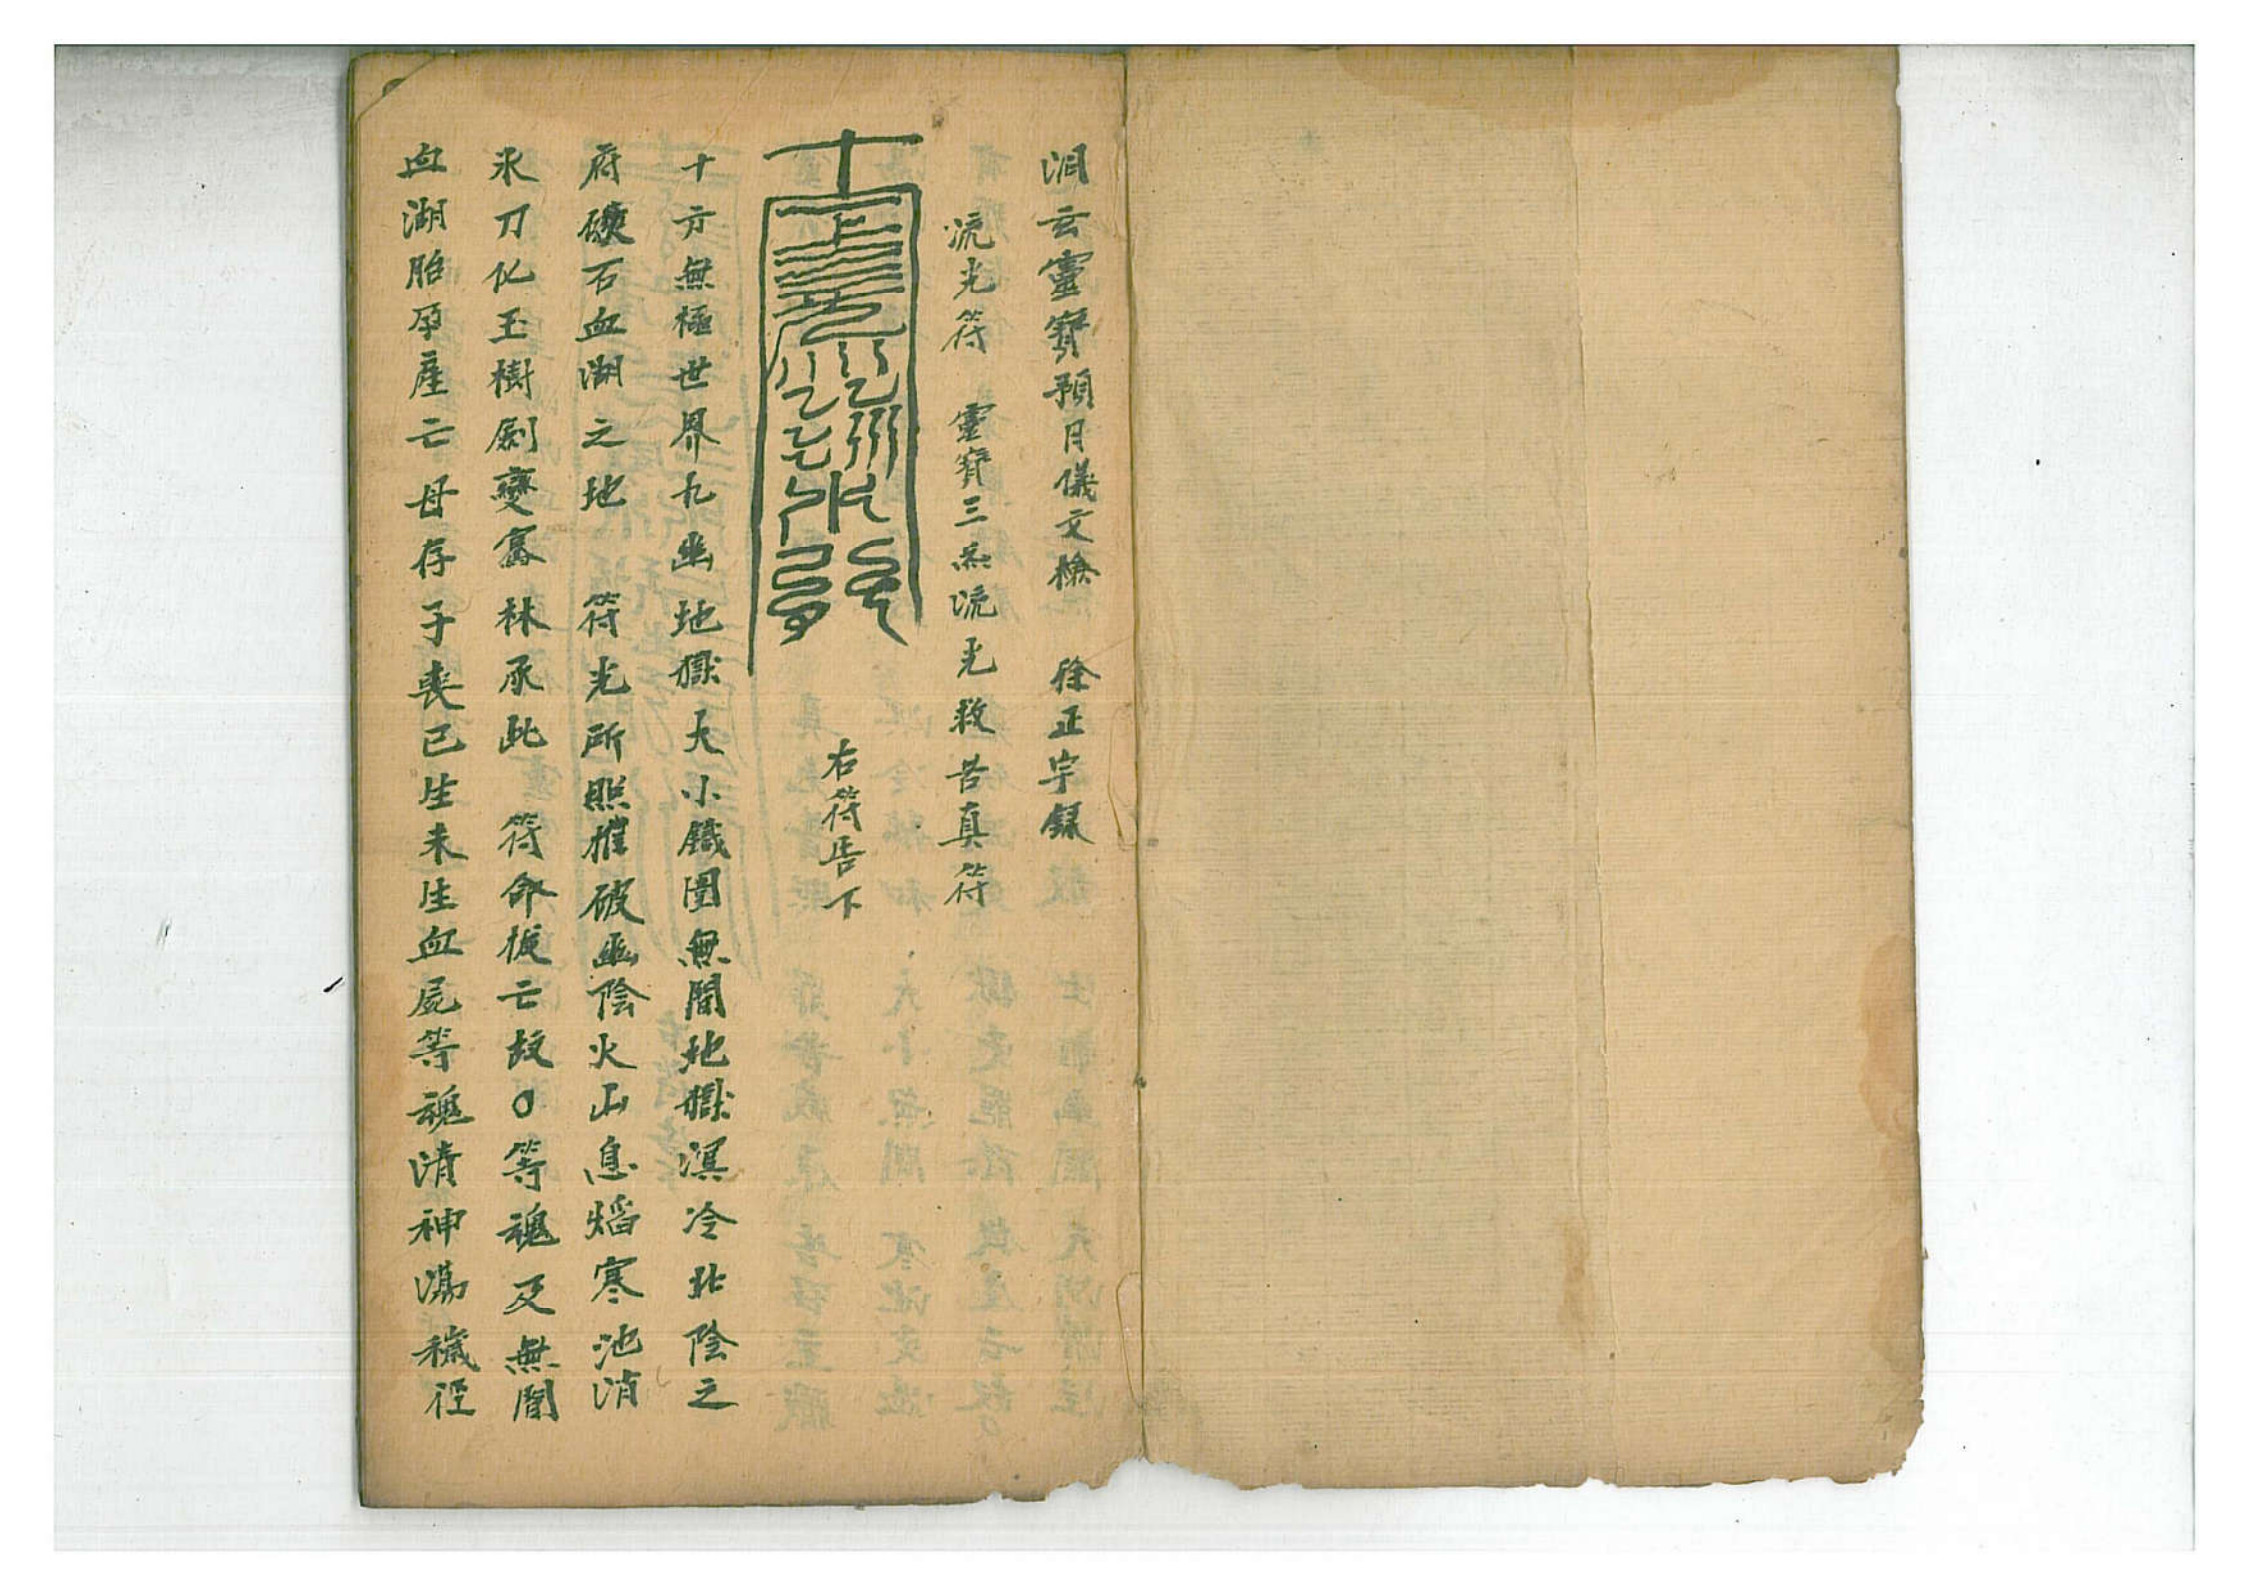 洞玄靈寶預月儀文檢 徐正宇錄
流光符 靈寶三炁流光救苦真符
右符告下
十方無極世界九幽地獄大小鐵圍無間地獄溟冷北陰之
府磺石血湖之地 符光所照摧破幽陰火山息熖寒池消
氷刀化玉樹劍變騫林承此 符命拔亡故〇等魂及無間
血湖胎孕產亡母存子喪已生未生血屍等魂清神濡穢徑